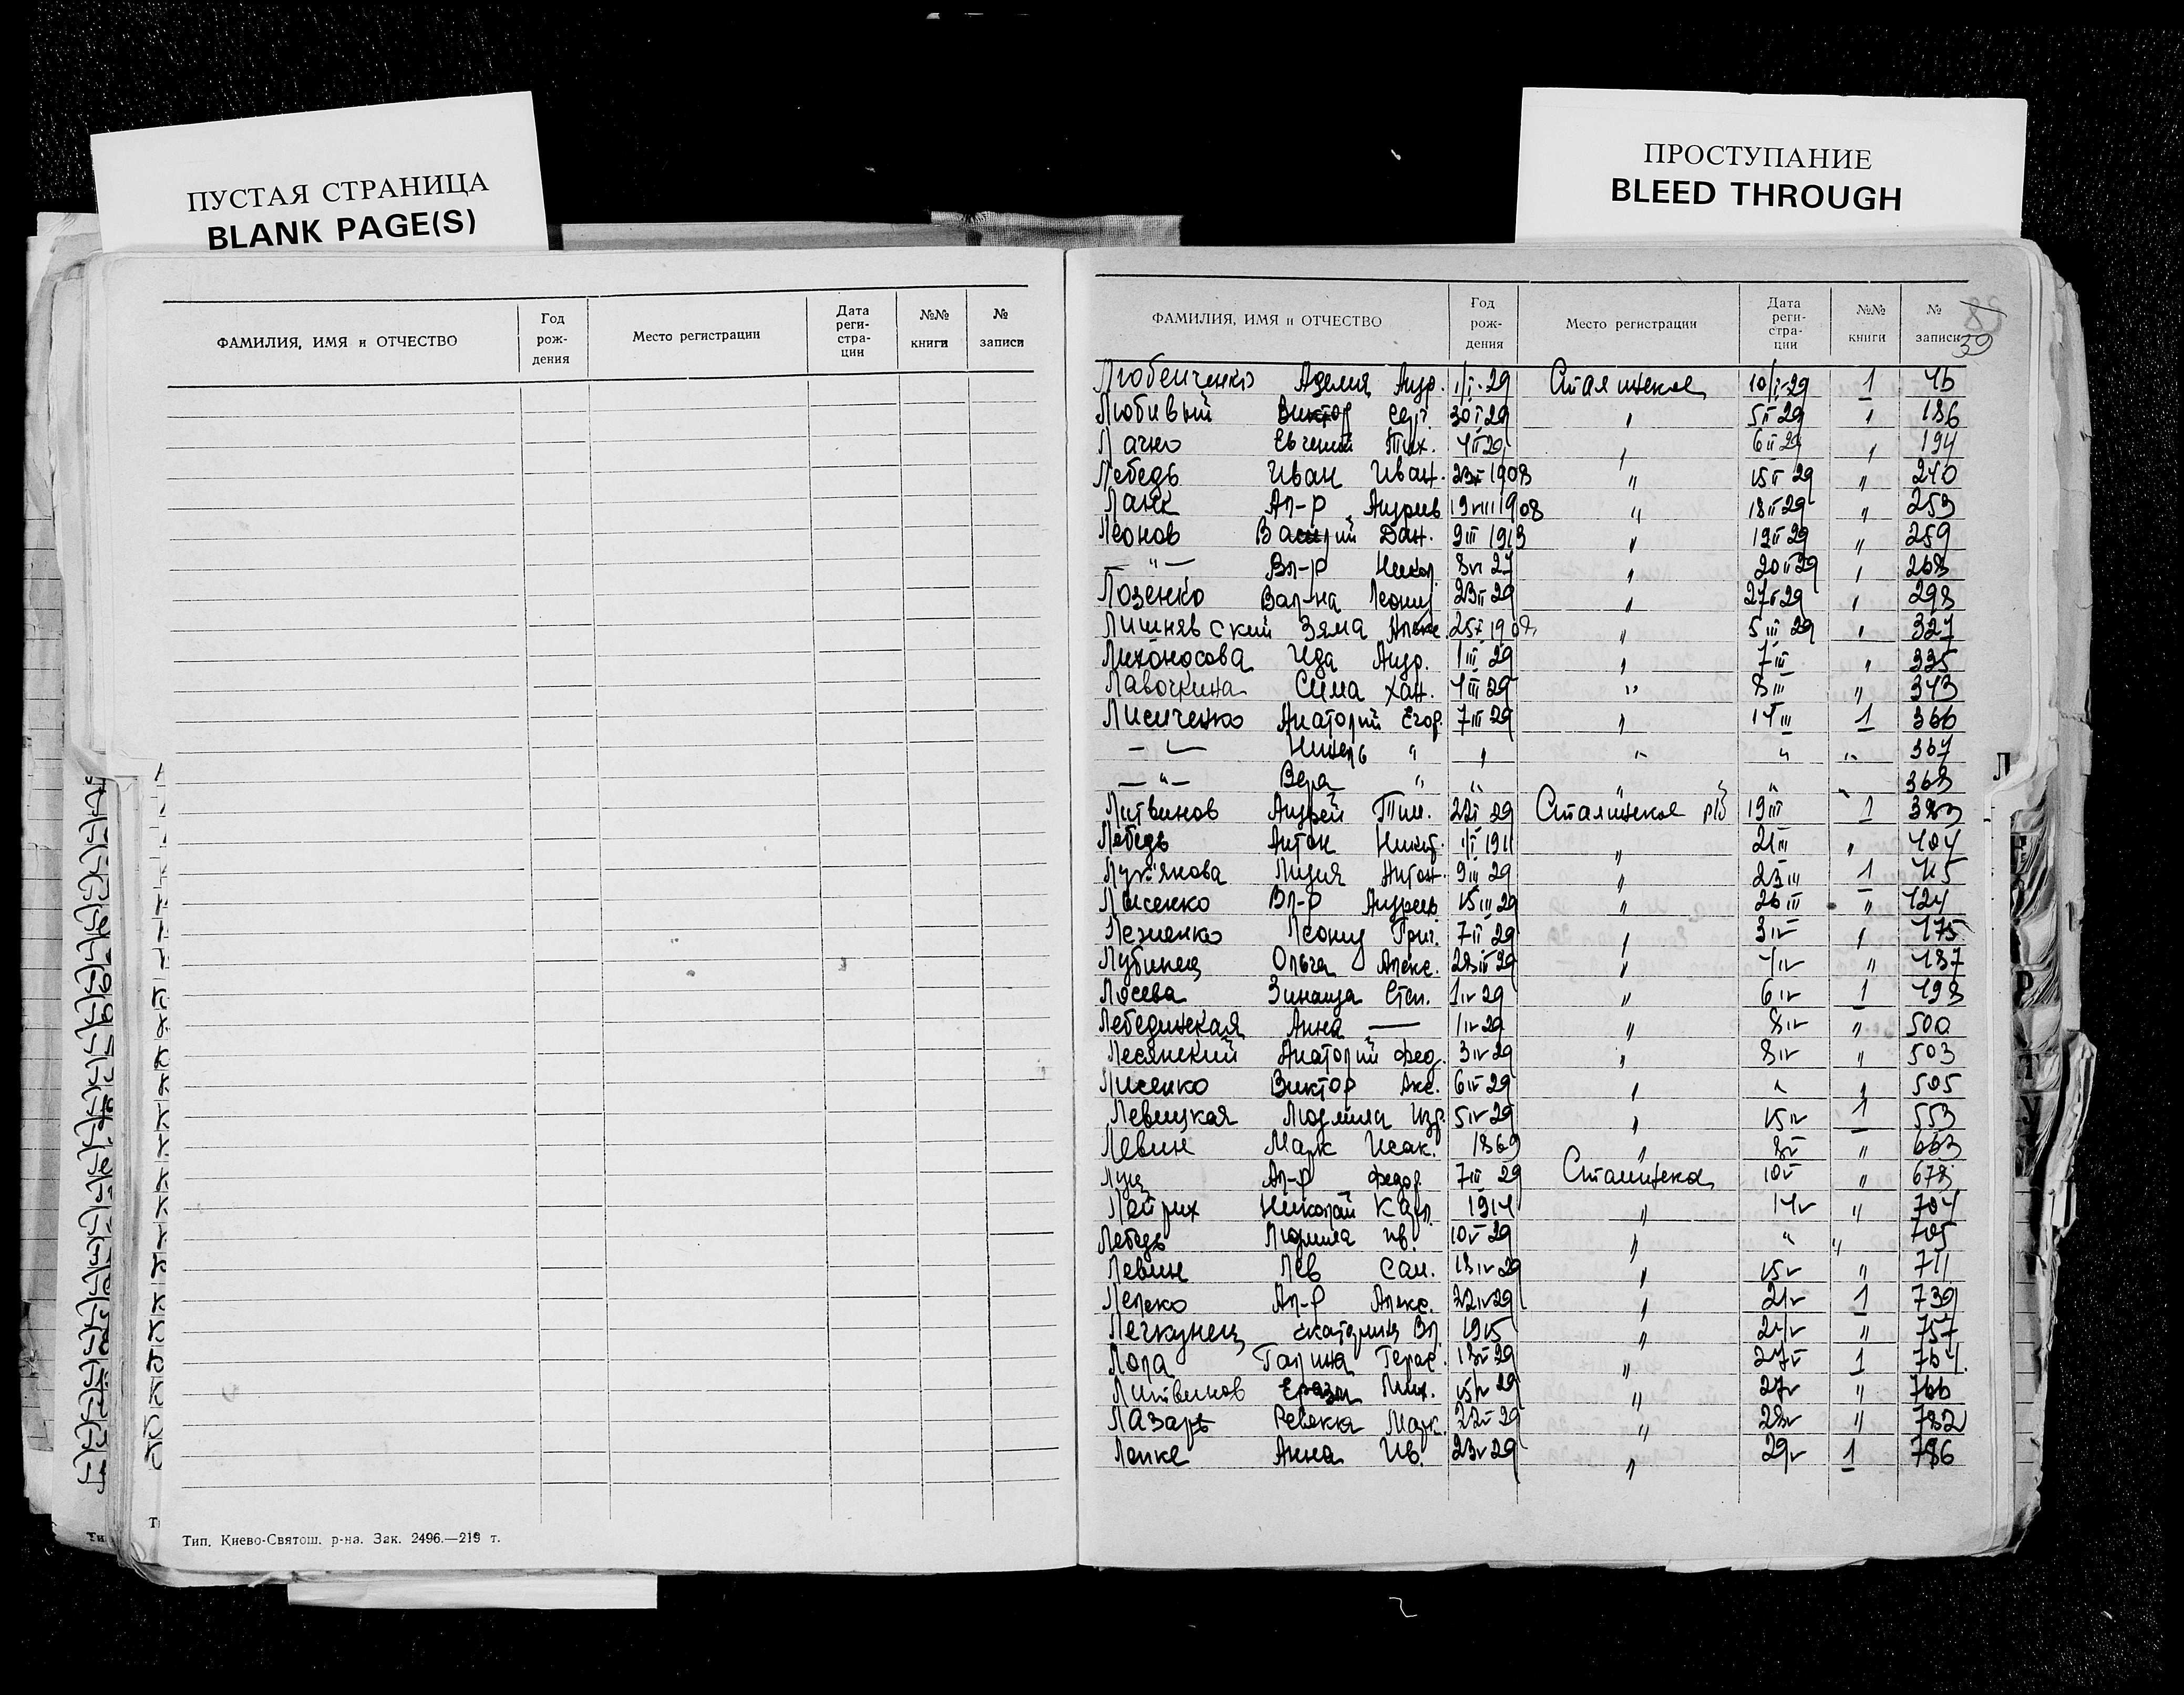 ПУСТАЯ СТРАНИЦА
BLANK PAGE(S)
ПРОСТУПАНИЕ
BLEED THROUGH
ФАМИЛИЯ, ИМЯ и ОТЧЕСТВО Год рож- дения Место регистрации Дата реги- стра- ции №№ книги № записи
Тип. Киево-Святош. р-на. Зак. 2496.—219 т.
ФАМИЛИЯ, ИМЯ и ОТЧЕСТВО Год рож- дения Место регистрации Дата реги- стра- ции №№ книги № записи
39
Любенченко Аделия Андр. 1/I-29 Сталинское 10/I-29 1 46
Любивый Виктор Серг. 30 I 29 " 5 II 29 " 186
Лачко Евгений Тих. 4 II 29 " 6 II 29 " 194
Лебедь Иван Иван. 1908 " 15 II 29 " 240
Ланк Ал-р Андреев 19 VIII 1908 " 18 II 29 " 253
Леонов Василий Дан. 9 III 1913 " 19 II 29 " 259
— " — Вл-р Никол. 8 VI 27 " 20 II 29 " 268
Лозенко Вал-на Леонид 23 II 29 " 27 II 29 " 298
Лишнявский Зяма Алекс. " 5 III 29 " 327
Лихоносова Ида Андр. 1 III 29 " 7 III " 335
Лавочкина Сима Хан. 4 III 29 " 8 III " 343
Лисиченко Анатолий Егор. 7 III 29 " 14 III 1 366
— " — Нинель " " " " " 367
— " — Вера " " " " " 368
Литвинов Андрей Тим. 29 Сталинское р/б 19 III 1 383
Лебедь Антон Никит. 1/I 1911 " 21 III " 404
Лукьянова Лидия Антон. 9 III 29 " 23 III 1 415
Лысенко Вл-р Андреев 15 III 29 " 26 III " 424
Лезненко Леонид Григ. 7 II 29 " 3 IV " 475
Лубинец Ольга Алекс. 28 III 29 " 4 IV " 487
Лосева Зинаида Степ. 1 IV 29 " 6 IV 1 498
Лебединская Анна — 1 IV 29 " 8 IV " 500
Лесянский Анатолий Фед. 3 IV 29 " 8 IV " 503
Лисенко Виктор Акс. 6 IV 29 " " " 505
Левицкая Людмила Изр. 5 IV 29 " 15 IV 1 553
Левин Марк Исак. 1869 " 8 V " 663
Луц Ал-р Федор. 7 III 29 Сталинска 10 V " 678
Лайрих Николай Карл. 1914 " 14 V " 704
Лебедь Людмила Ив. 10 V 29 " " " 705
Левин Лев Сам. 18 IV 29 " 15 V " 711
Лелеко Ал-р Алекс. 22 IV 29 " 21 V 1 739
Легкунец Екатерина Вл. 1915 " 24 V " 757
Лопа Галина Герас. 18 V 29 " 27 V 1 764
Литвинов Еразм Мих. 15 IV 29 " 27 V " 766
Лазарь Ревекка Марк. 22 V 29 " 28 V " 782
Лапке Анна Ив. 23 V 29 " 29 V 1 786